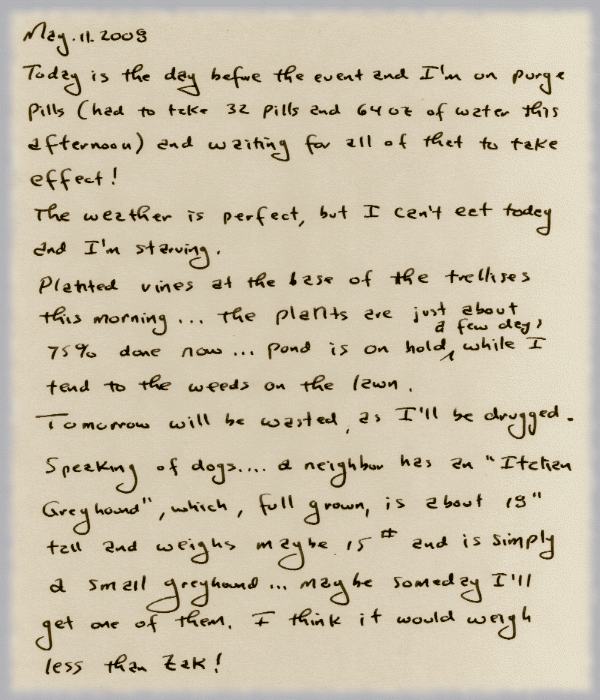 May.11.2009
Today is the day before the event and I'm on purge
pills (had to take 32 pills and 64 oz of water this
afternoon) and waiting for all of that to take
effect!
The weather is perfect, but I can't eat today
and I'm starving.
Planted vines at the base of the trellises
this morning... the plants are just about
a few days
75% done now... pond is on hold, while I
tend to the weeds on the lawn.
Tomorrow will be wasted, as I'll be drugged.
Speaking of dogs.... a neighbor has an "Italian
Greyhound", which, full grown, is about 19"
tall and weighs maybe 15# and is simply
a small greyhound... maybe someday I'll
get one of them. I think it would weigh
less than Zak!